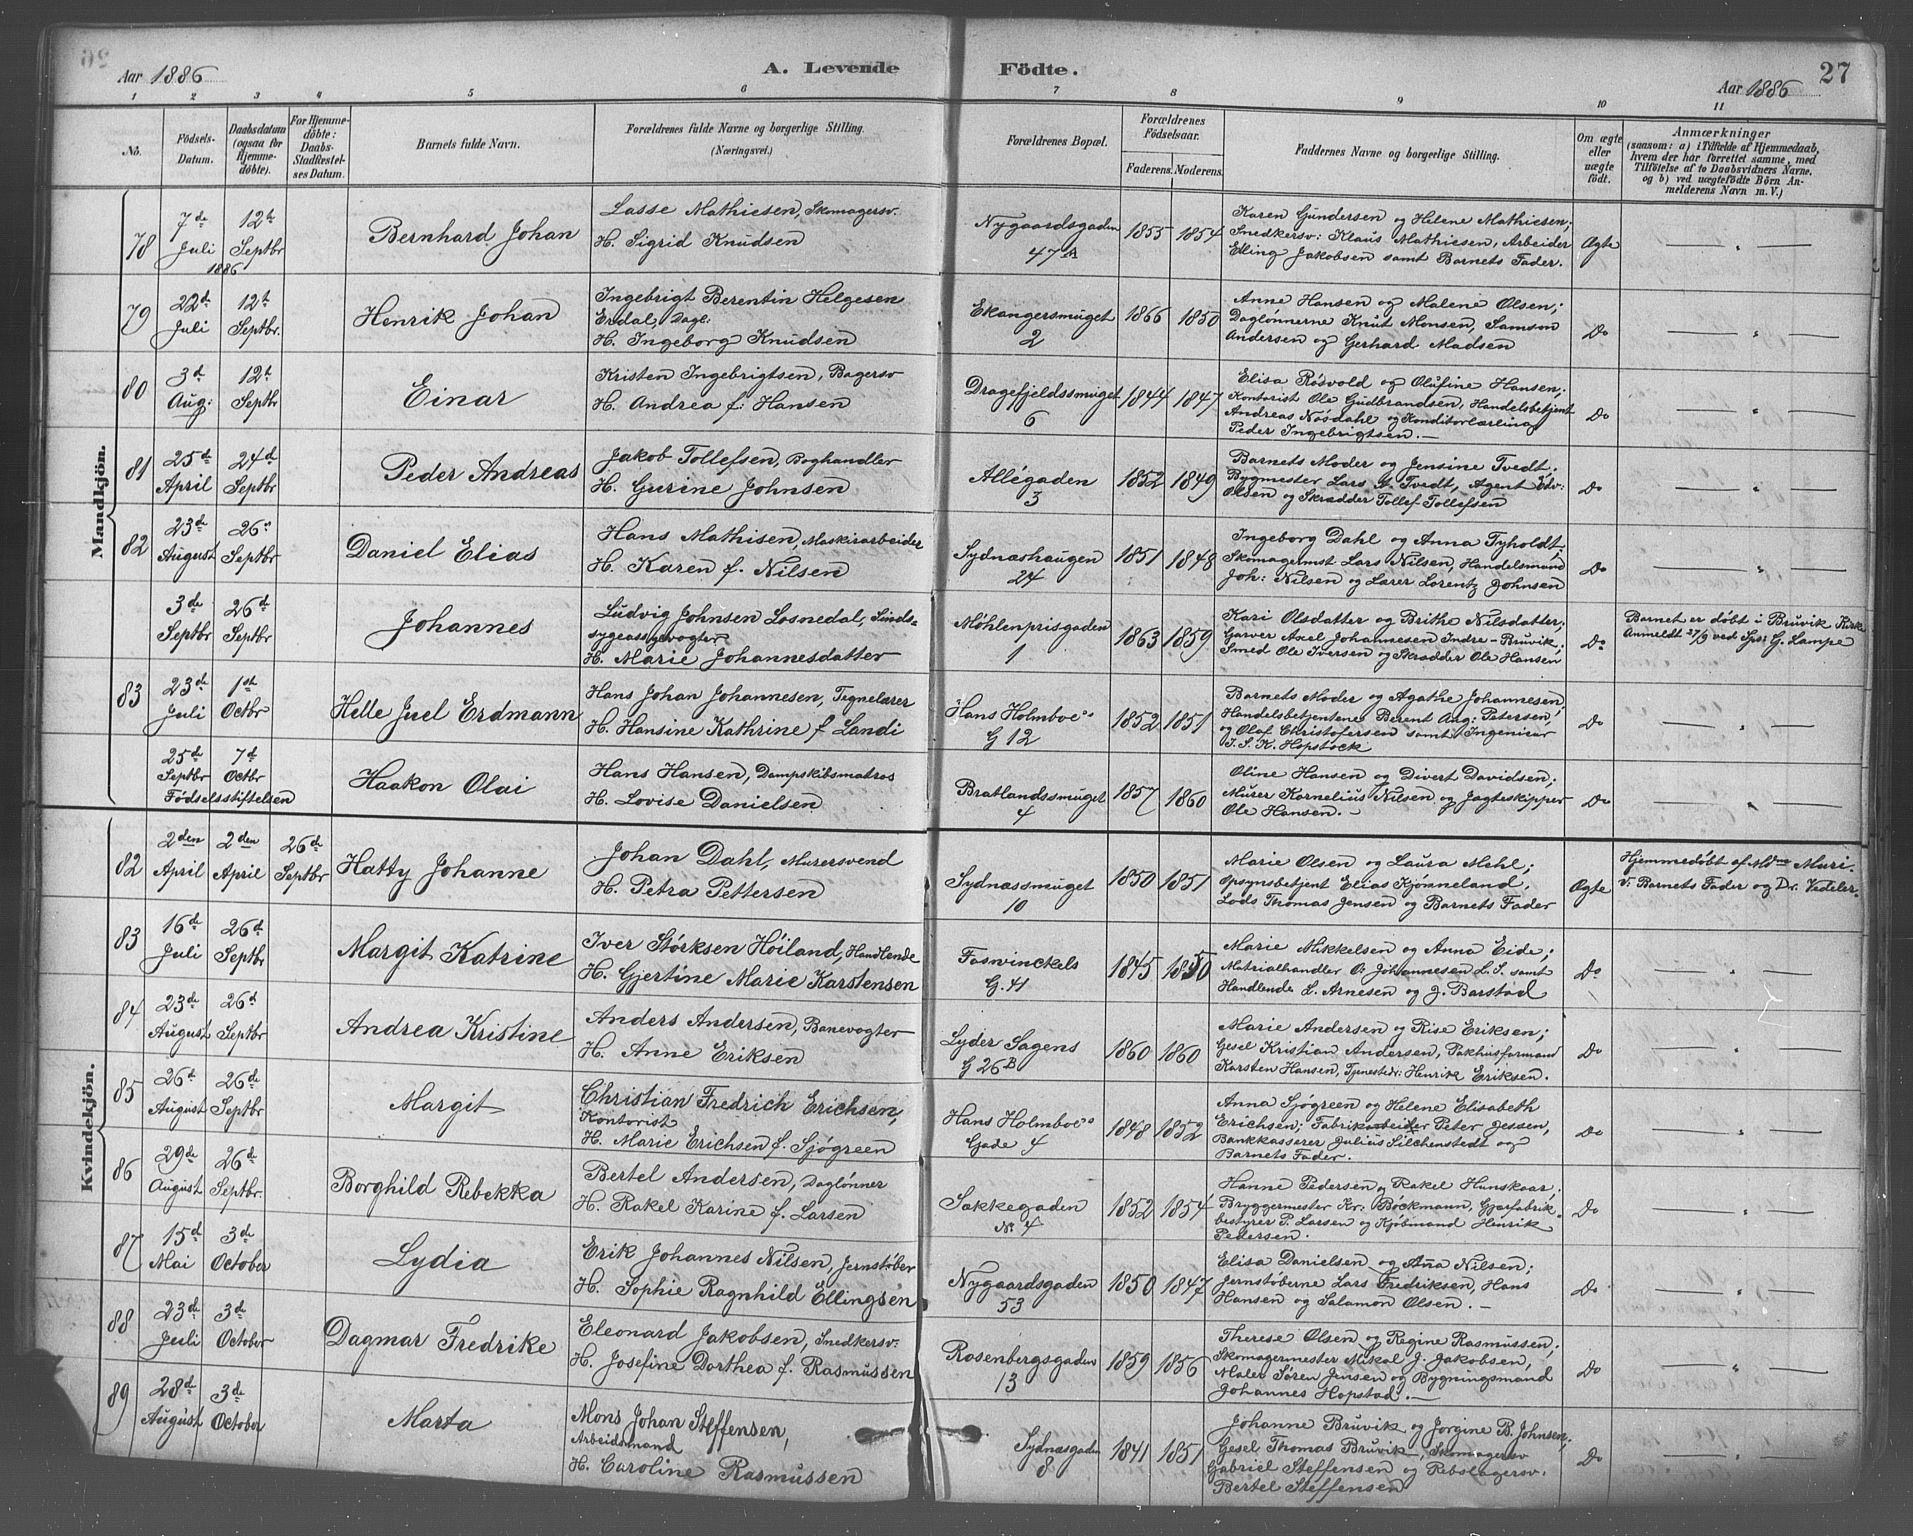 Aar 1886
A. Levende Födte.
27
Aar 1886
1 2 3 4 5 6 7 8 9 10 11
No.
Fødsels-
Datum.
Daabsdatum
(ogsaa for
Hjemme-
døbte).
For Hjemme-
døbte:
Daabs-
Stadfæstel-
ses Datum.
Barnets fulde Navn.
Forældrenes fulde Navne og borgerlige Stilling.
(Næringsvei.)
Forældrenes Bopæl.
Forældrenes
Fødselsaar.
Faderens. Moderens.
Faddernes Navne og borgerlige Stilling.
Om ægte
eller
uægte
født.
Anmærkninger
(saasom: a) i Tilfælde af Hjemmedaab,
hvem der har forrettet samme, med
Tilføielse af to Daabsvidners Navne.
og b) ved uægtefødte Börn An-
melderens Navn m. V.)
Mandkjön.
78
7de
Juli
1886
12t
Septbr
Bernhard Johan
Lasse Mathiesen, Skomagersv.
H. Sigrid Knudsen
Nygaardsgaden
47 A
1855 1854
Karen Gundersen og Helene Mathiesen;
Snedkersv: Klaus Mathiesen, Arbeider
Elling Jakobsen samt Barnets Fader.
Ægte
— " —
79
22d
Juli
12t
Septbr.
Henrik Johan
Ingebrigt Berentin Helgesen
Erdal, Dagl:
H. Ingeborg Knudsen
Ekangersmuget
2
1866 1850
Anne Hansen og Malene Olsen;
Daglønnerne Knut Monsen, Samson
Andersen og Gerhard Madsen
Do
— " —
80
3d
Aug:
12t
Septbr
Einar
Kristen Ingebrigtsen, Bagersv
H. Andrea f: Hansen
Dragefjeldssmuget
6
1844 1847
Elisa Røsvold og Olufine Hansen;
Kontorist Ole Gudbrandsen, Handelsbetjent
Andreas Nøsdahl og Konditorlærling
Peder Ingebrigtsen. —
Do
— " —
81
25d
April
24d
Septbr
Peder Andreas
Jakob Tollefsen, Boghandler
H. Gurine Johnsen
Allégaden
3
1852 1849
Barnets Moder og Jensine Tvedt;
Bygmester Lars A. Tvedt, Agent Edv:
Olsen og Skrædder Tollef Tollefsen
Do
— " —
82
23d
August
26"
Septbr
Daniel Elias
Hans Mathisen, Maskinarbeider
H. Karen f. Nilsen
Sydnæshaugen
24
1851 1848
Ingeborg Dahl og Anna Tyholdt;
Skomagermst Lars Nilsen, Handelsmand
Joh: Nilsen og Lærer Lorentz Johnsen
Do
— " —
3de
Septbr
26d
Septbr
Johannes
Ludvig Johnsen Losnedal, Sinds-
sygeasylvogter
H. Marie Johannesdatter
Møhlenprisgaden
1
1863 1859
Kari Olsdatter og Brithe Nilsdatter;
Garver Axel Johannesen Indre-Bruvik,
Smed Ole Iversen og Skrædder Ole Hansen
Do
Barnet er døbt i Bruvik Kirke
Anmeldt 27/9 ved Spr: G. Lampe
83
23d
Juli
1st
Octbr
Helle Juel Erdmann
Hans Johan Johannesen, Tegnelærer
H. Hansine Kathrine f. Landi
Hans Holmboes
G 12
1852 1851
Barnets Moder og Agathe Johannesen;
Handelsbetjentene Berent Aug: Petersen,
og Olaf Christofersen samt Ingeniør
J. S. K. Hopstock
Do
— " —
25de
Septbr
7d
Octbr
Fødselsstiftelsen
Haakon Olai
Hans Hansen, Dampskibsmatros
H. Lovise Danielsen
Bratlandssmuget
4
1857 1860
Oline Hansen og Divert Davidsen;
Murer Kornelius Nilsen og Jagteskipper
Ole Hansen. —
Do
— " —
Kvindekjön.
82
2den
April
2den
April
26de
Septbr
Hatty Johanne
Johan Dahl, Murersvend
H. Petra Pettersen
Sydnæssmuget
10
1850 1851
Marie Olsen og Laura Mehl;
Opsynsbetjent Elias Kjønneland,
Lods Thomas Jensen og Barnets Fader
Ægte
Hjemmedøbt af Mdm
V. Barnets Fader og Dr.
83
16de
Juli
26d
Septbr
Margit Katrine
Iver Størksen Høiland, Handlende
H. Gjertine Marie Karstensen
Foswinckels
G. 41
1845 1850
Marie Mikkelsen og Anna Eide;
Matrialhandler O: Johannesen L. S. samt
Handlende L. Arnesen og J. Barstad
Do
— " —
84
23de
August
26d
Septbr
Andrea Kristine
Anders Andersen, Banevogter
H. Anne Eriksen
Lyder Sagens
G 26B
1860 1860
Marie Andersen og Rise Eriksen;
Gesel Kristian Andersen, Pakhusformand
Karsten Hansen, Tjenestedr: Henrik Eriksen.
Do
— " —
85
26d
August
26de
Septbr
Margit
Christian Fredrich Erichsen,
Kontorist
H. Marie Erichsen f. Sjögreen
Hans Holmboes
Gade 4
1848 1852
Anna Sjögreen og Helene Elisabeth
Erichsen; Fabrikarbeider Peter Jessen,
Bankkasserer Julius Silchenstedt og
Barnets Fader.
Do
— " —
86
29de
August
26d
Septbr.
Borghild Rebekka
Bertel Andersen, Daglønner
H. Rakel Karine f. Larsen
Sækkegaden
No 4
1852 1854
Hanne Pedersen og Rakel Hunskaar;
Bryggermester Kr: Bøckmann, Gjærfabrik-
bestyrer P. Larsen og Kjøbmand Henrik
Pedersen.
Do
— " —
87
15d
Mai
3de
October
Lydia
Erik Johannes Nilsen, Jernstøber
H. Sophie Ragnhild Ellingsen
Nygaardsgaden
53
1850 1847
Elisa Danielsen og Ana Nilsen;
Jernstøberne Lars Fredriksen, Hans
Hansen og Salamon Olsen. —
Do
— " —
88
23de
Juli
3d
October
Dagmar Fredrike
Eleonard Jakobsen, Snedkersv:
H. Josefine Dorthea f. Rasmussen
Rosenbergsgaden
13
1859 1856
Therese Olsen og Regine Rasmussen.
Skomagermester Mikal J. Jakobsen,
Maler Søren Jensen og Bygningsmand
Johannes Hopstad. —
Do
— " —
89
28d
August
3de
October
Marta
Mons Johan Steffensen,
Arbeidsmand
H. Caroline Rasmussen
Sydnæsgaden
8
1841 1851
Johanne Bruvik og Jorgine B. Johnsen,
Gesel Thomas Bruvik, Skomagersv
Gabriel Steffensen og Rebslagersv.
Bertel Steffensen
Do
— " —